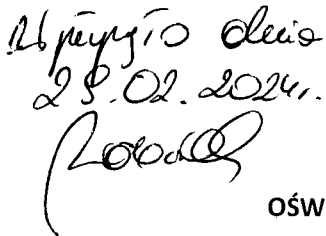 Wpłynęło dnia
23.02.2024r.
OŚW